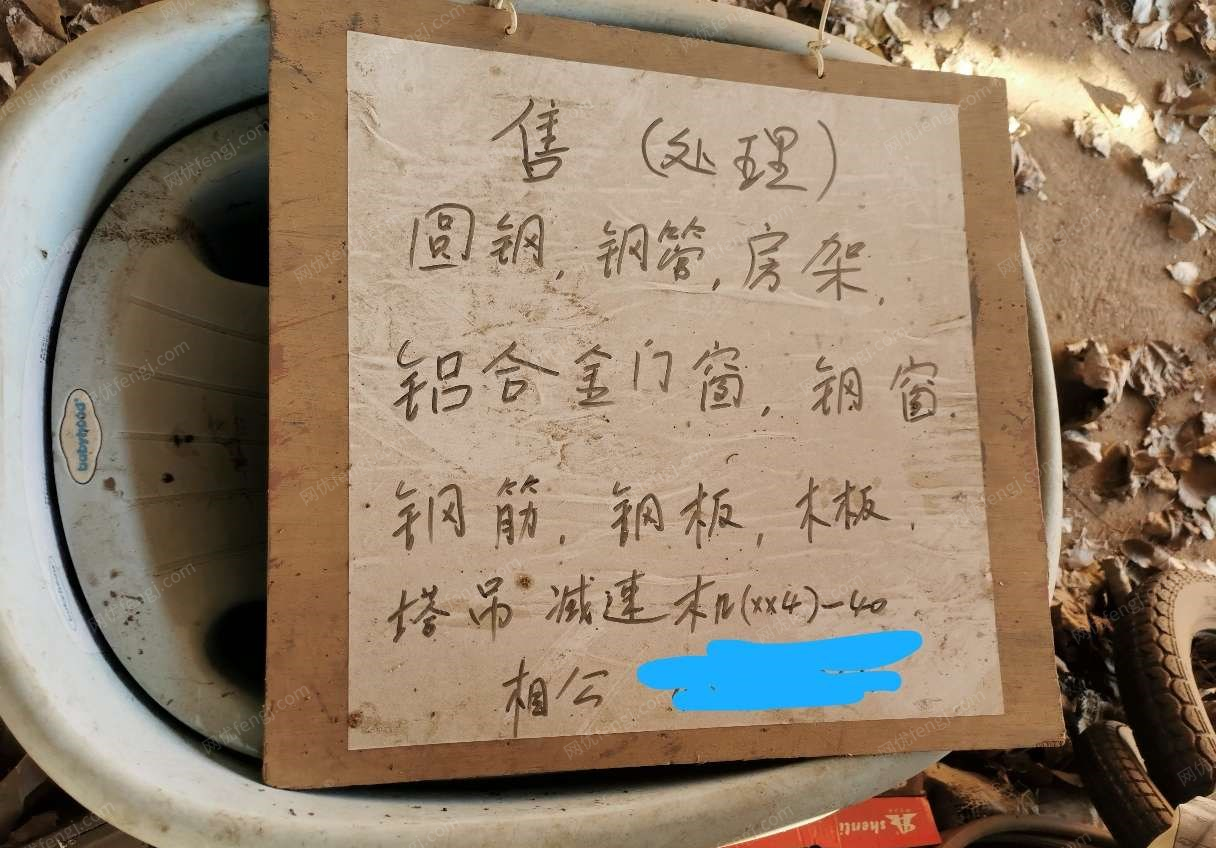 售 (处理)
圆钢, 钢管, 房架,
铝合金门窗, 钢窗.
钢筋, 钢板, 木板,
塔吊减速机(xx4)-40
相公
babyhood
shenli
网优fengj.com